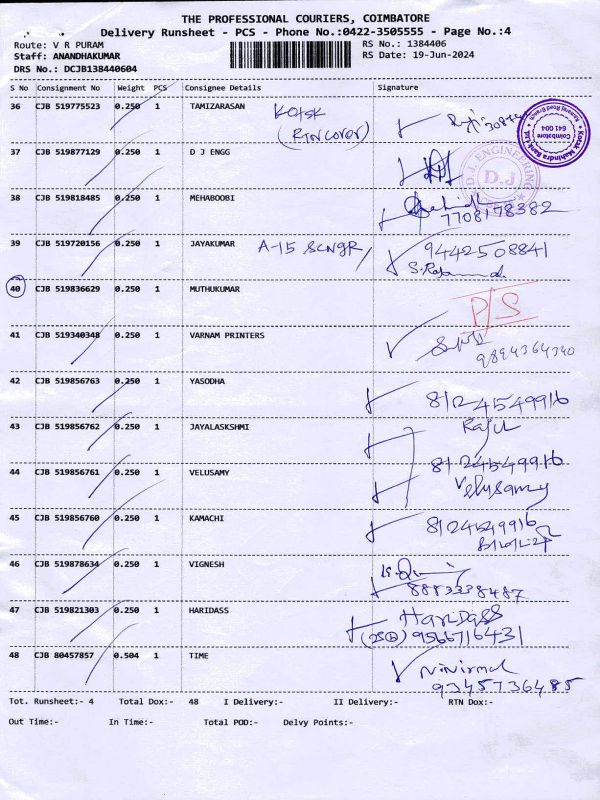 THE PROFESSIONAL COURIERS, COIMBATORE
Delivery Runsheet - PCS - Phone No.:0422-3505555 - Page No.:4
Route: V R PURAM RS No.: 1384406
Staff: ANANDHAKUMAR RS Date: 19-Jun-2024
DRS No.: DCJB138440604
S No Consignment No Weight PCS Consignee Details Signature
36 CJB 519775523 0.250 1 TAMIZARASAN
Kotak Mahindra Bank Ltd Coimbatore 641 004
37 CJB 519877129 0.250 1 D J ENGG
D.J. ENGINEERING D.J
38 CJB 519818485 0.250 1 MEHABOOBI
7708178382
39 CJB 519720156 0.250 1 JAYAKUMAR A-15 SCNGR 9442508841
40 CJB 519836629 0.250 1 MUTHUKUMAR
P/S
41 CJB 519340348 0.250 1 VARNAM PRINTERS
9894364340
42 CJB 519856763 0.250 1 YASODHA
8124549916
43 CJB 519856762 0.250 1 JAYALASKSHMI
8124549916
44 CJB 519856761 0.250 1 VELUSAMY
Velusamy
45 CJB 519856760 0.250 1 KAMACHI 8124549916
46 CJB 519878634 0.250 1 VIGNESH
8883338487
47 CJB 519821303 0.250 1 HARIDASS Haridass
9566716431
48 CJB 80457857 0.504 1 TIME
9345736485
Tot. Runsheet:- 4 Total Dox:- 48 I Delivery:- II Delivery:- RTN Dox:-
Out Time:- In Time:- Total POD:- Delvy Points:-